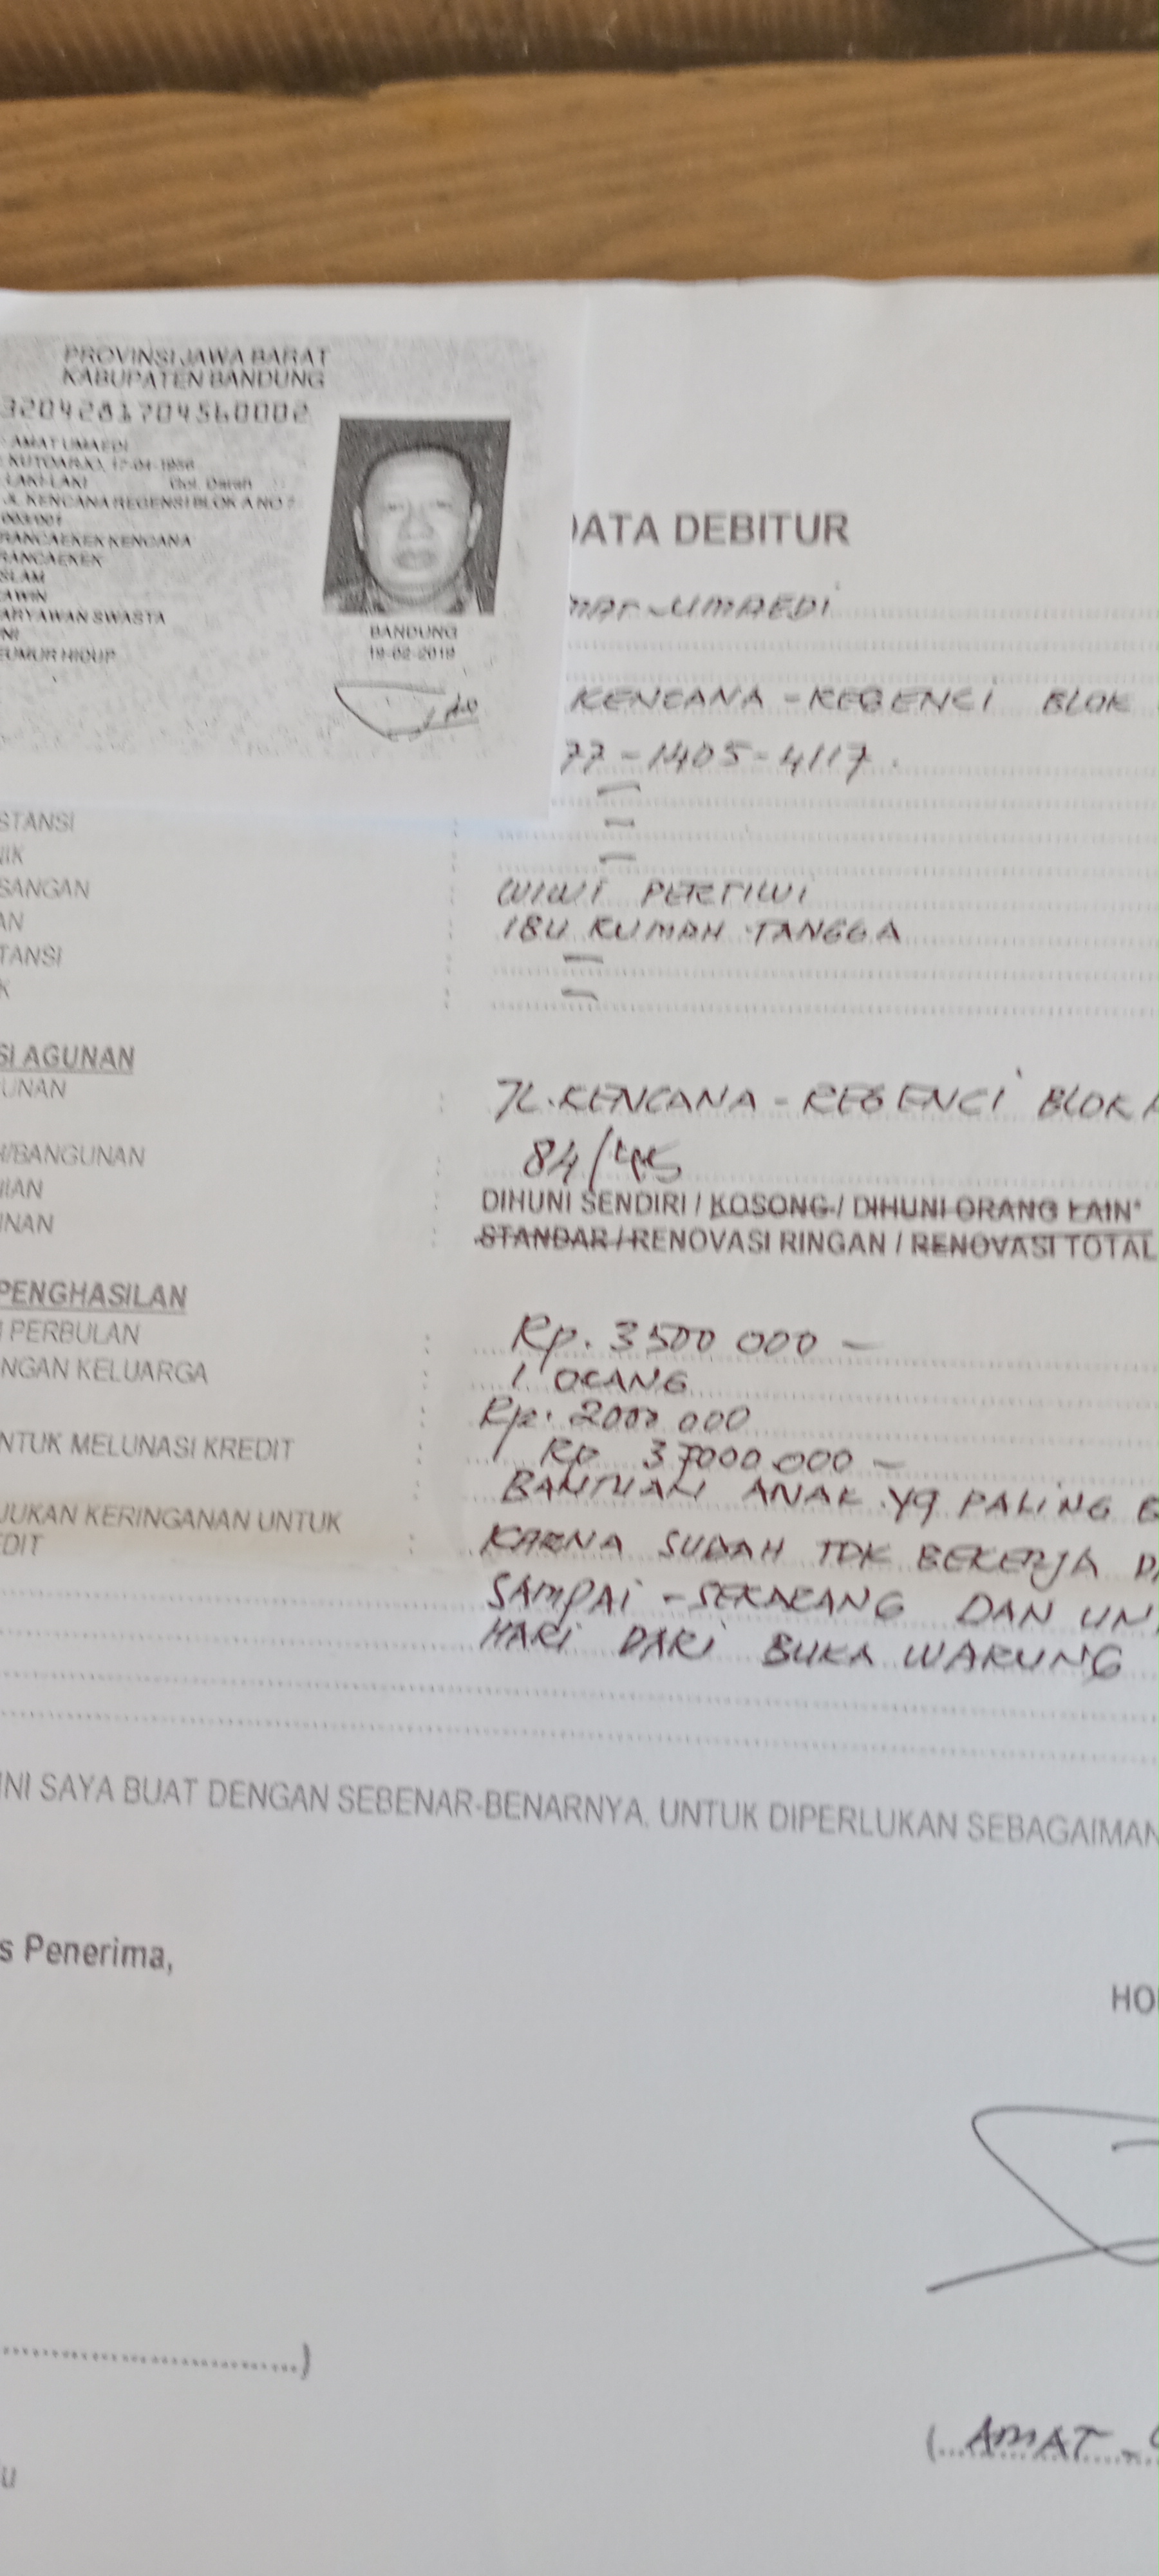 PROVINSI JAWA BARAT
KABUPATEN BANDUNG
3204281704560002
AMAT UMAEDI
KUTOARJO, 17-04-1956
LAKI-LAKI Gol. Darah
JL KENCANA REGENSI BLOK A NO 7
003/001
RANCAEKEK KENCANA
RANCAEKEK
SLAM
KAWIN
ARYAWAN SWASTA
NI
EUMUR HIDUP
BANDUNG
19-02-2019
DATA DEBITUR
MAT - UMAEDI
KENCANA - REGENCI BLOK
77 - 1405 - 4117.
STANSI
NIK
SANGAN : WIWI PERTIWI
AN : IBU RUMAH TANGGA
TANSI :
K :
SI AGUNAN
UNAN : JL. KENCANA - REGENCI BLOK A
H/BANGUNAN : 84/45
NIAN : DIHUNI SENDIRI / KOSONG / DIHUNI ORANG LAIN*
UNAN : STANDAR / RENOVASI RINGAN / RENOVASI TOTAL
PENGHASILAN
I PERBULAN : Rp. 3500 000 -
NGAN KELUARGA : 1 ORANG
: Rp. 2000 000
NTUK MELUNASI KREDIT : Rp 37000.000 -
: BANTUAN ANAK YG PALING B
JUKAN KERINGANAN UNTUK
EDIT : KARNA SUDAH TDK BEKERJA DA
SAMPAI - SEKARANG DAN UN
HARI DARI BUKA WARUNG
INI SAYA BUAT DENGAN SEBENAR-BENARNYA, UNTUK DIPERLUKAN SEBAGAIMAN
s Penerima,
HO
)
( AMAT - U
u